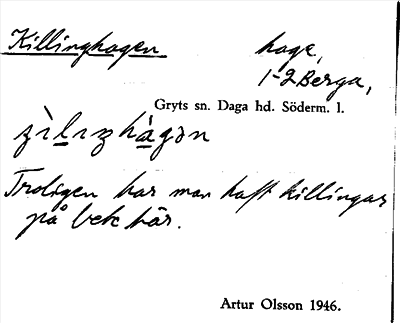 Killinghagen hage,
1-2 Berga,
Gryts sn. Daga hd. Söderm. l.
Troligen har man haft killingar
på bete här.
Artur Olsson 1946.